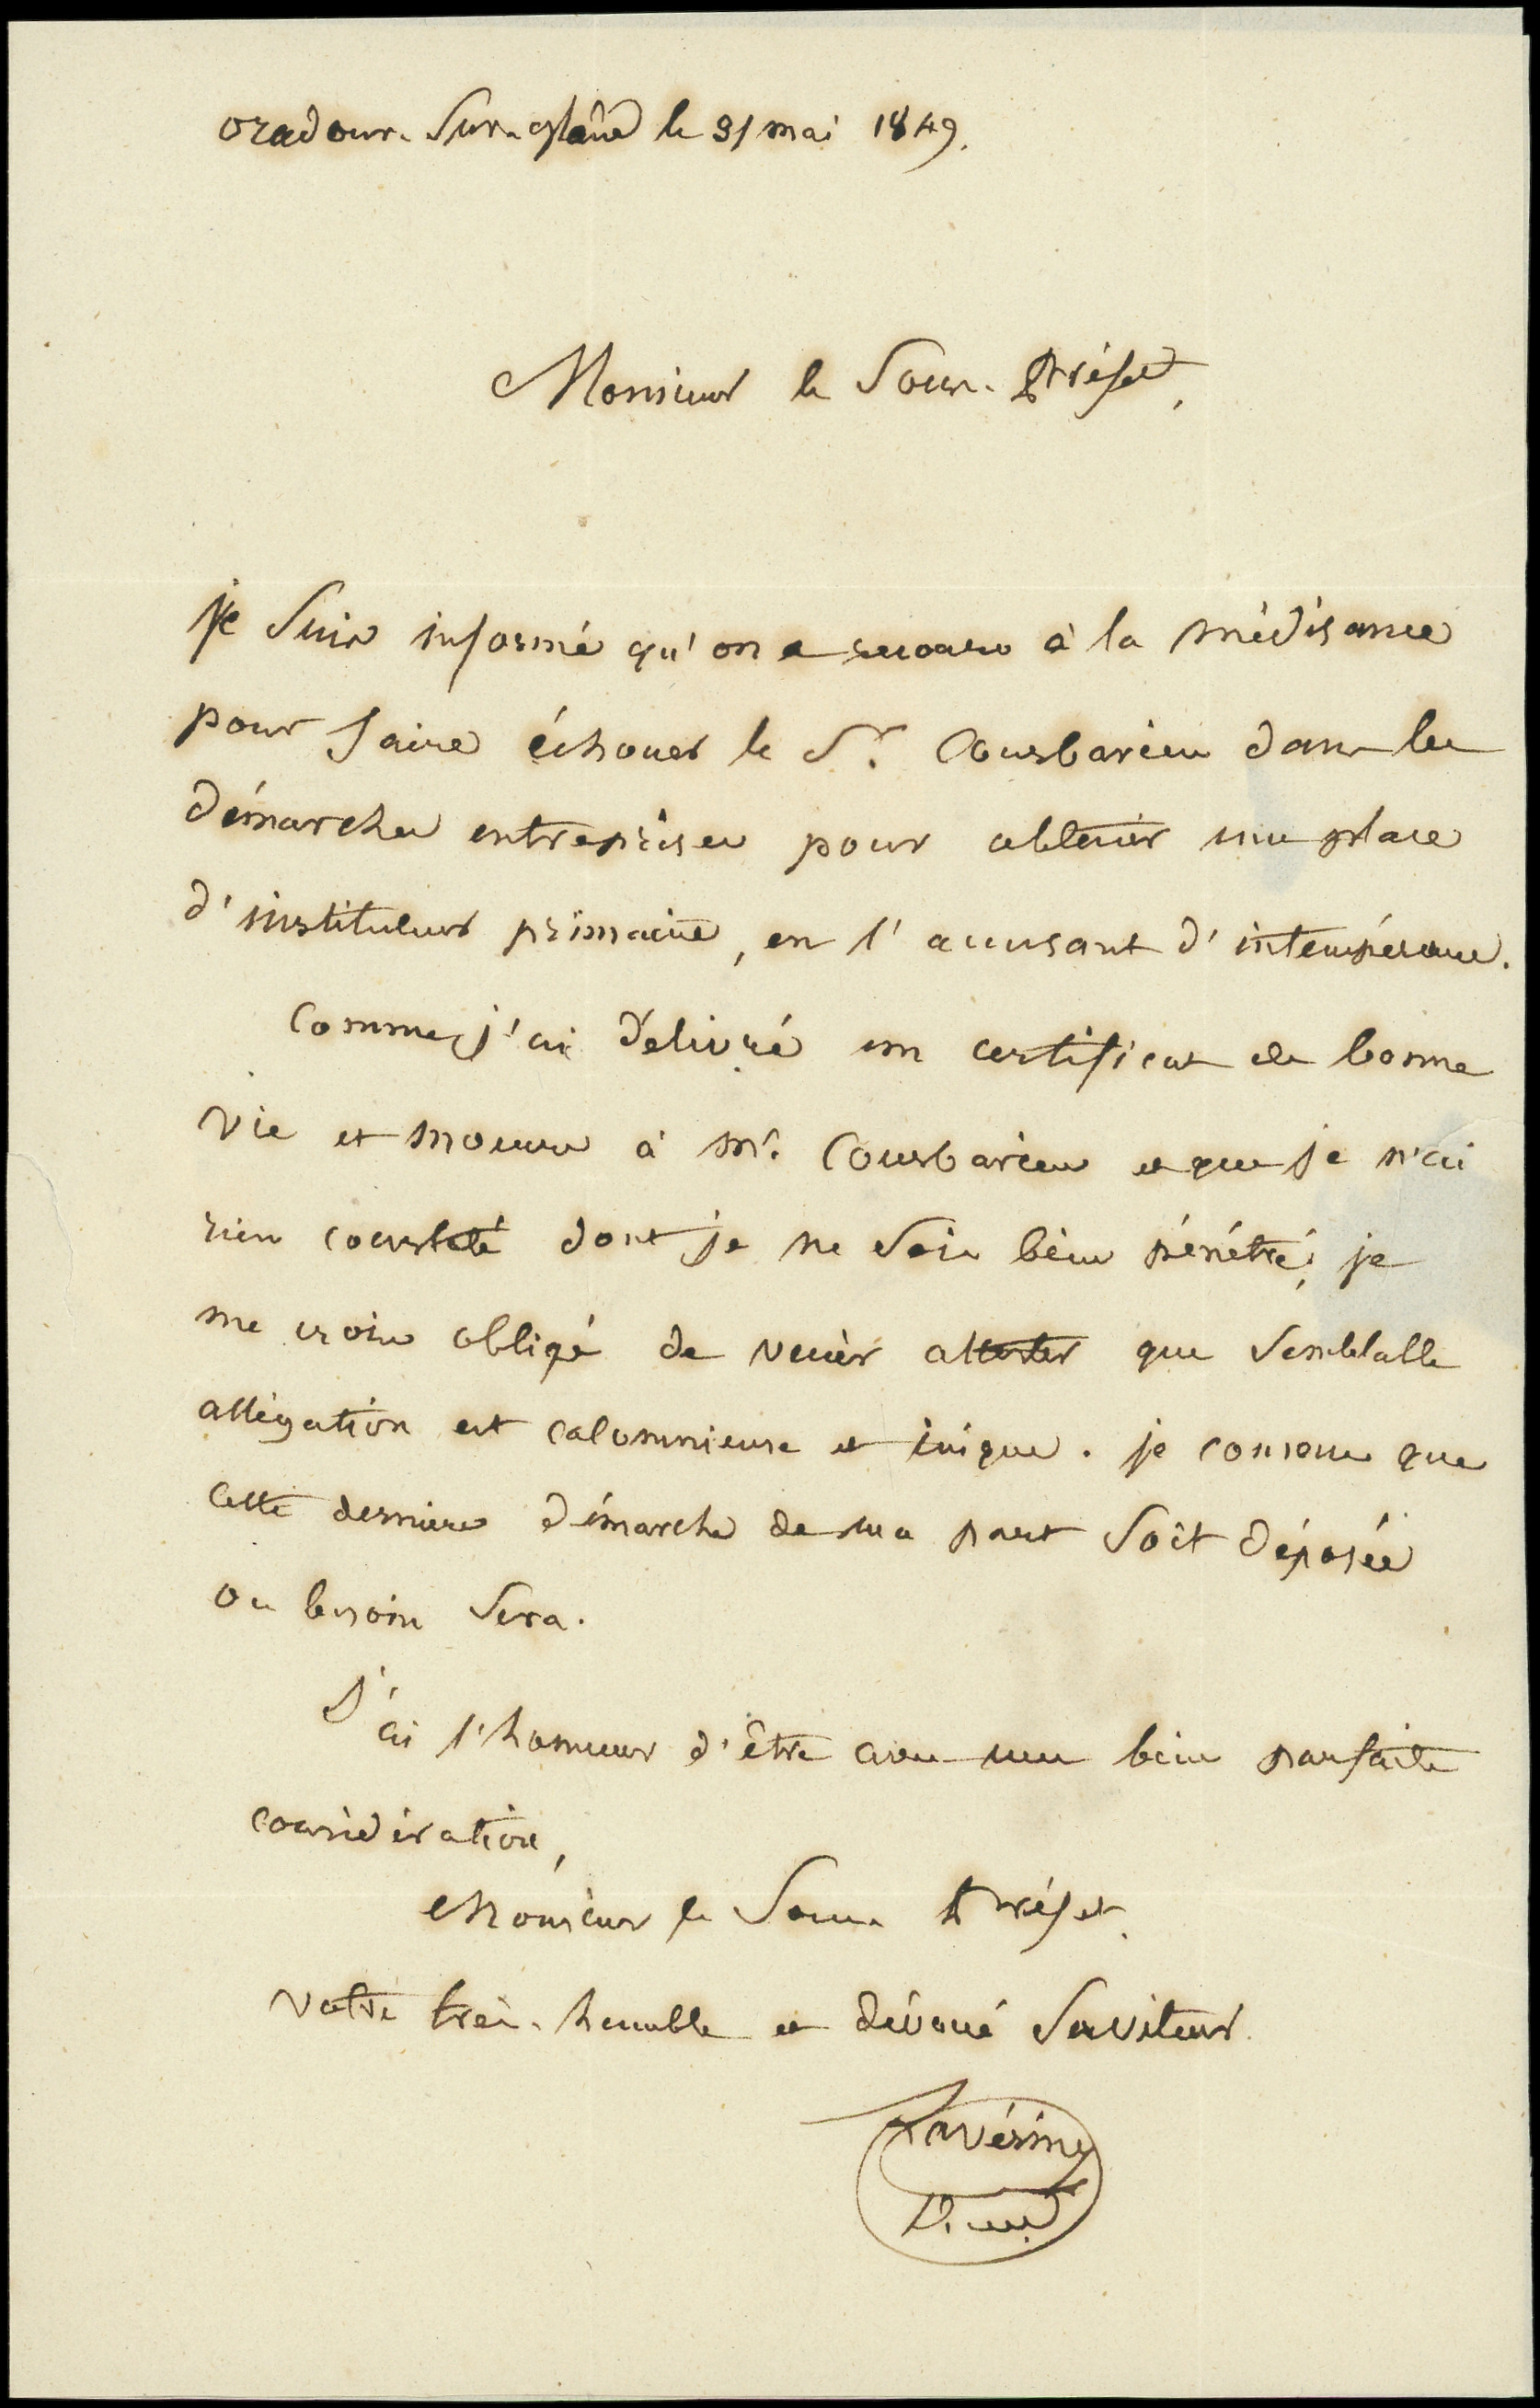 oradour-sur-glane le 31 mai 1849.
Monsieur le Sous-Préfet,
je suis informé qu'on a recours à la médisance
pour faire échouer le Sr. Coursbarien dans les
démarches entreprises pour obtenir une place
d'instituteur primaire, en l'accusant d'intempérance.
Comme j'ai délivré un certificat de bonne
vie et moeurs à Mr. Coursbarien et que je n'ai
rien constaté dont je ne sois bien pénétré, je
me crois obligé de venir attester que semblable
allégation est calomnieuse et inique. je consens que
cette dernière démarche de ma part soit déposée
ou besoin sera.
J'ai l'honneur d'être avec une bien parfaite
considération,
Monsieur le Sous-Préfet.
votre très-humble et dévoué serviteur
Lavérine
D.